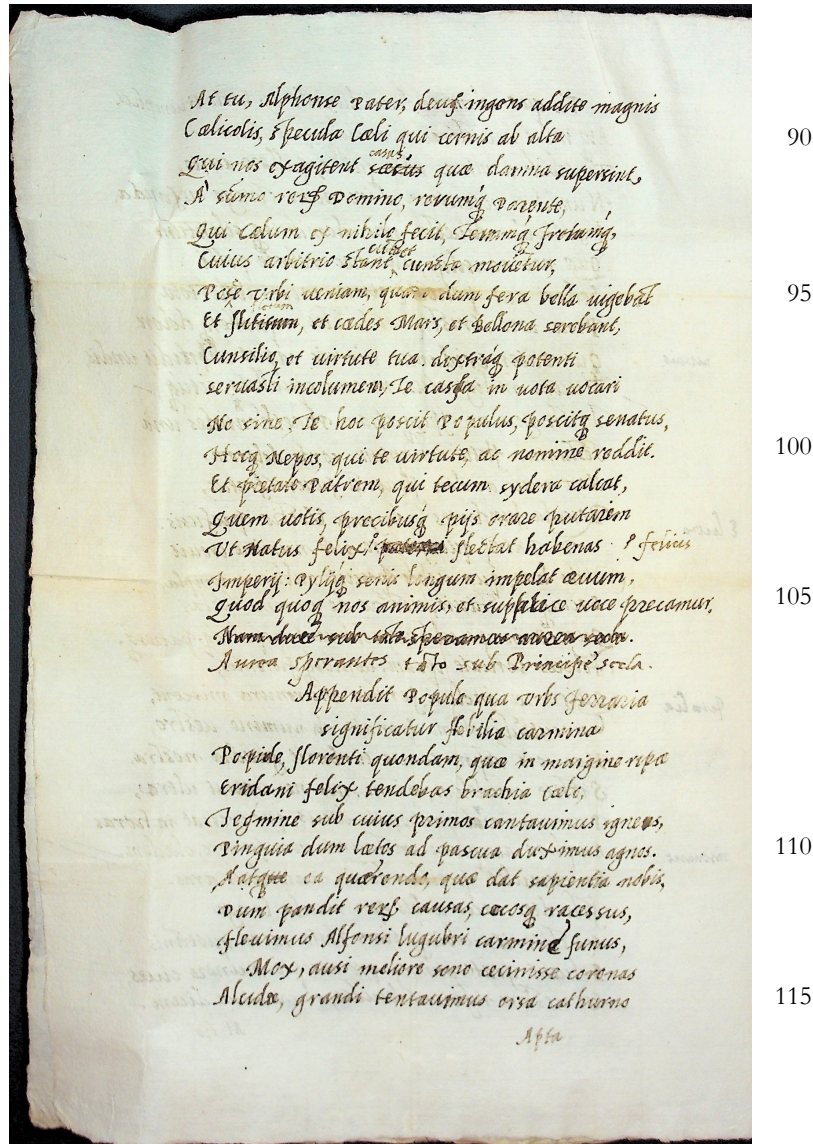 At tu, Alphonse Pater, deusq; ingens addite magnis
Cælicolis, specula Cæli qui cernis ab alta 90
Qui nos exagitent casus quæ damna supersint,
A' sūmo rerū Domino, rerumq; Parente,
Qui Cælum ex nihilo fecit, Terramq; Fretumq;,
Cuius arbitrio stant, cuncta movetur,
Posse Urbi ueniam, quam dum fera bella uigebāt 95
Et fletum, et cædes Mars, et Bellona serebant,
Cunsilio, et uirtute tua, dextraq; potenti
seruasti incolumem, Te in uota uocari
No sine. Te hoc poscit Populus, poscitq; senatus,
Hocq; Nepos, qui te uirtute, ac nomine reddit. 100
Et pietate Patrem, qui tecum sydera calcat,
Quem uotis, precibusq; pijs orare putarem
Ut Natus felix, flectat habenas felicis
Imperij: Pylijq; senis longum impleat æuum,
Quod quoq; nos animis, et supplice uoce precamur, 105
Nam duce sub tāto speramus aurea secla.
Aurea sperantes tāto sub Principe secla.
Appendit Populo qua Urbs Ferraria
significatur flebilia carmina
Popule, florenti quondam, quæ in margine ripæ
Eridani felix tendebas brachia cælo,
Tegmine sub cuius primos cantauimus igneis,
Pinguia dum lætos ad pascua duximus agnos. 110
Atque ea quærendo, quæ dat sapientia nobis,
Dum pandit rerū causas, cæcosq; racessus,
Fleuimus Alfonsi lugubri carmine funus,
Mox, ausi meliore sono cecinisse coronas
Alcidæ, grandi tentauimus orsa cothurno 115
Apta